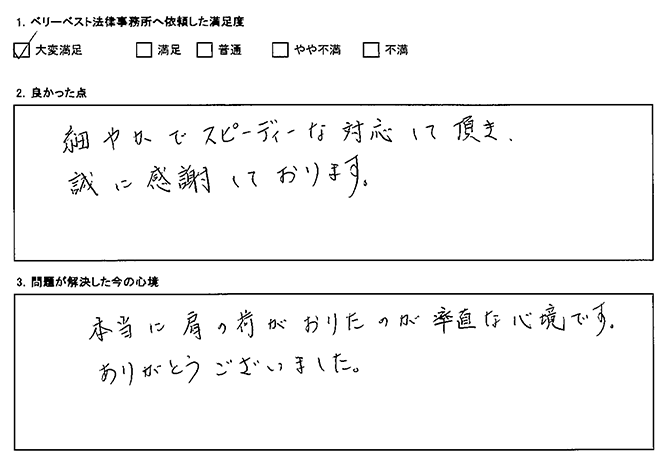 1. ベリーベスト法律事務所へ依頼した満足度
☑ 大変満足 □ 満足 □ 普通 □ やや不満 □ 不満
2. 良かった点
細やかでスピーディーな対応して頂き、
誠に感謝しております。
3. 問題が解決した今の心境
本当に肩の荷がおりたのが率直な心境です。
ありがとうございました。